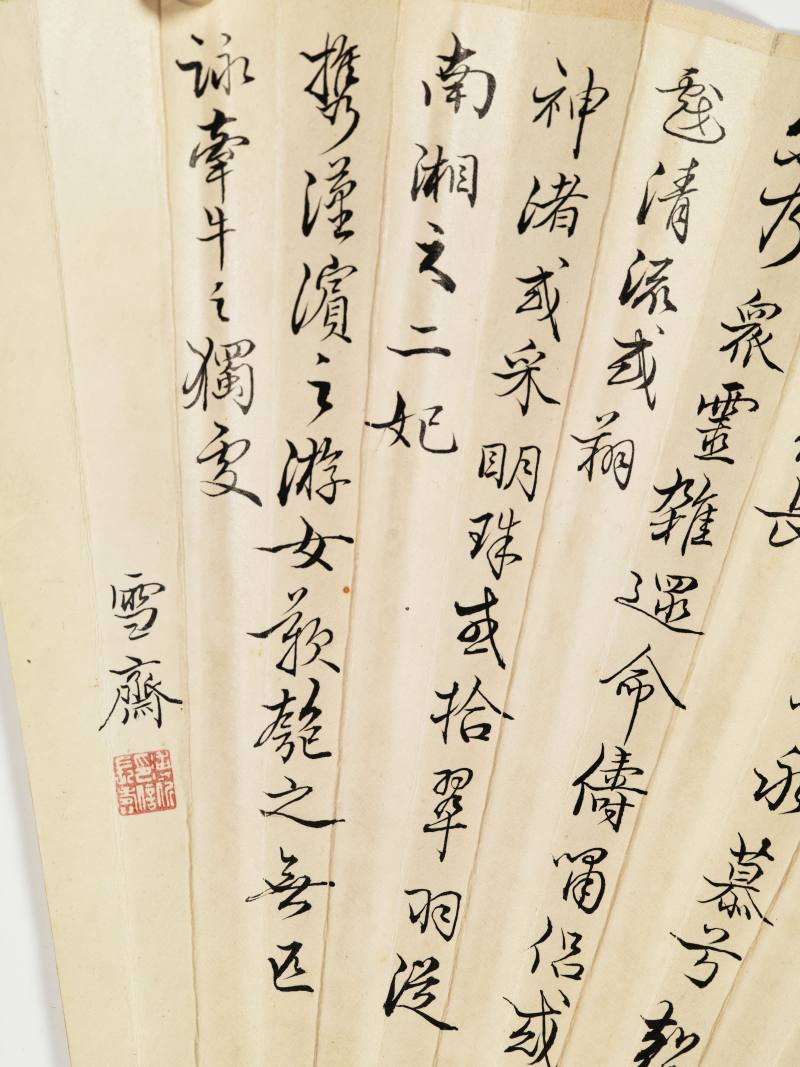 長永慕兮
眾靈雜遝命儔嘯侶或
戲清流或翔
神渚或采明珠或拾翠羽從
南湘之二妃
攜漢濱之游女歎匏之無匹
詠牽牛之獨處
雪齋
溥伒印信長壽